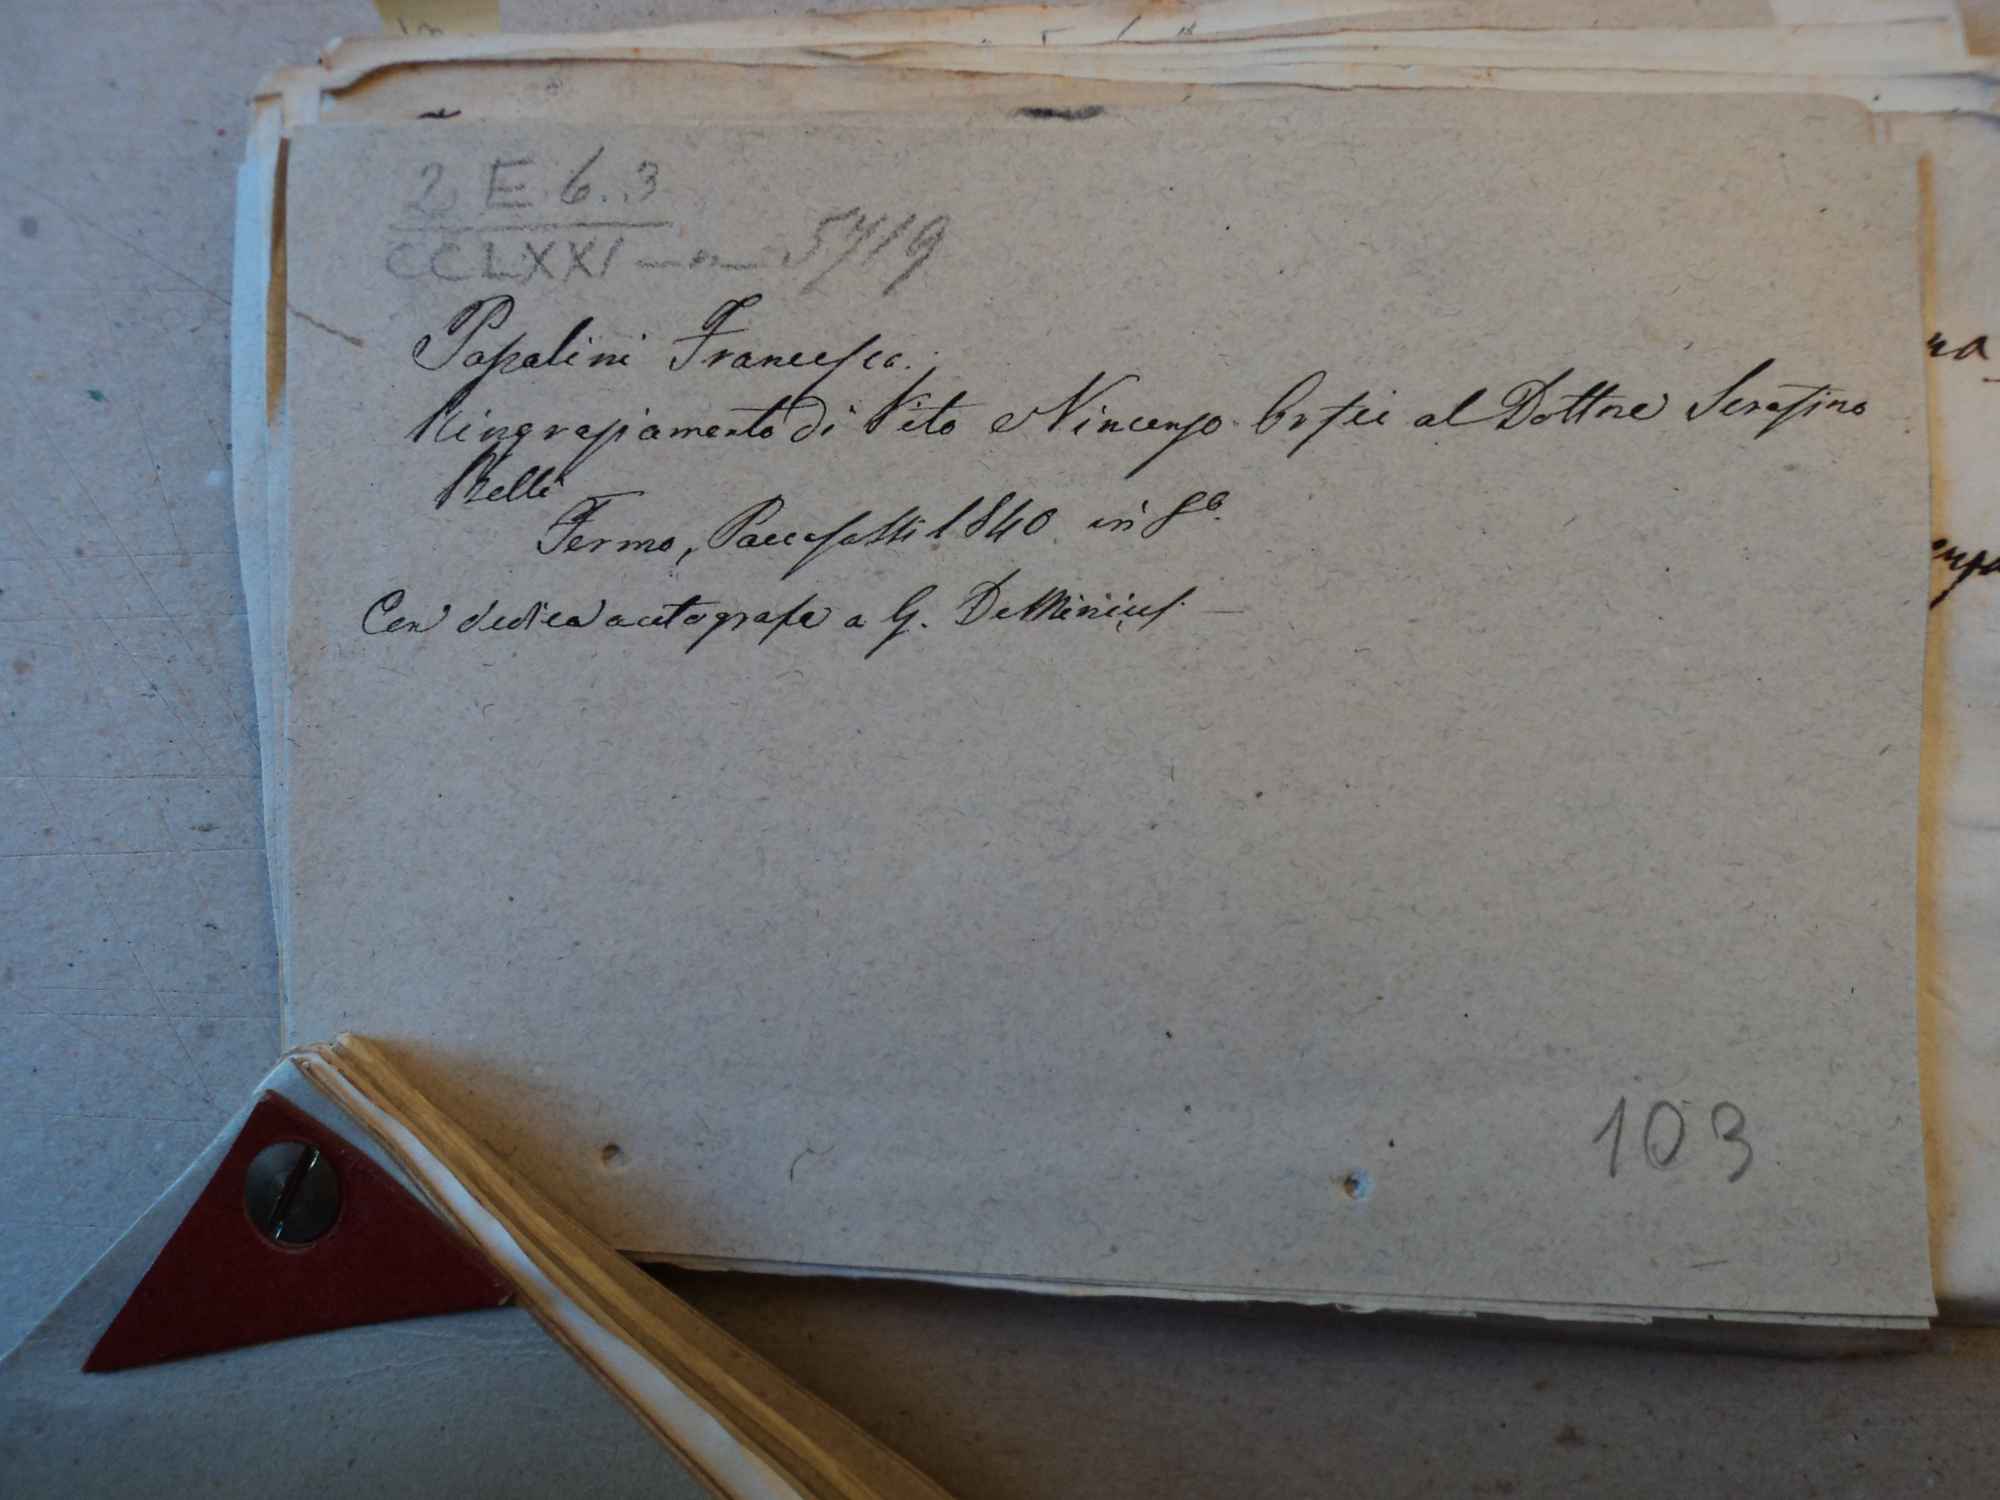 2 E. 6. 3
CCLXXI — n — 5719
Papalini Francesca.
Ringraziamento di Vito e Vincenzo Orfei al Dottore Serafino
Belli
Fermo, Paccasassi 1840 in 8º.
Con dedica autografa a G. DeMinicis. —
103